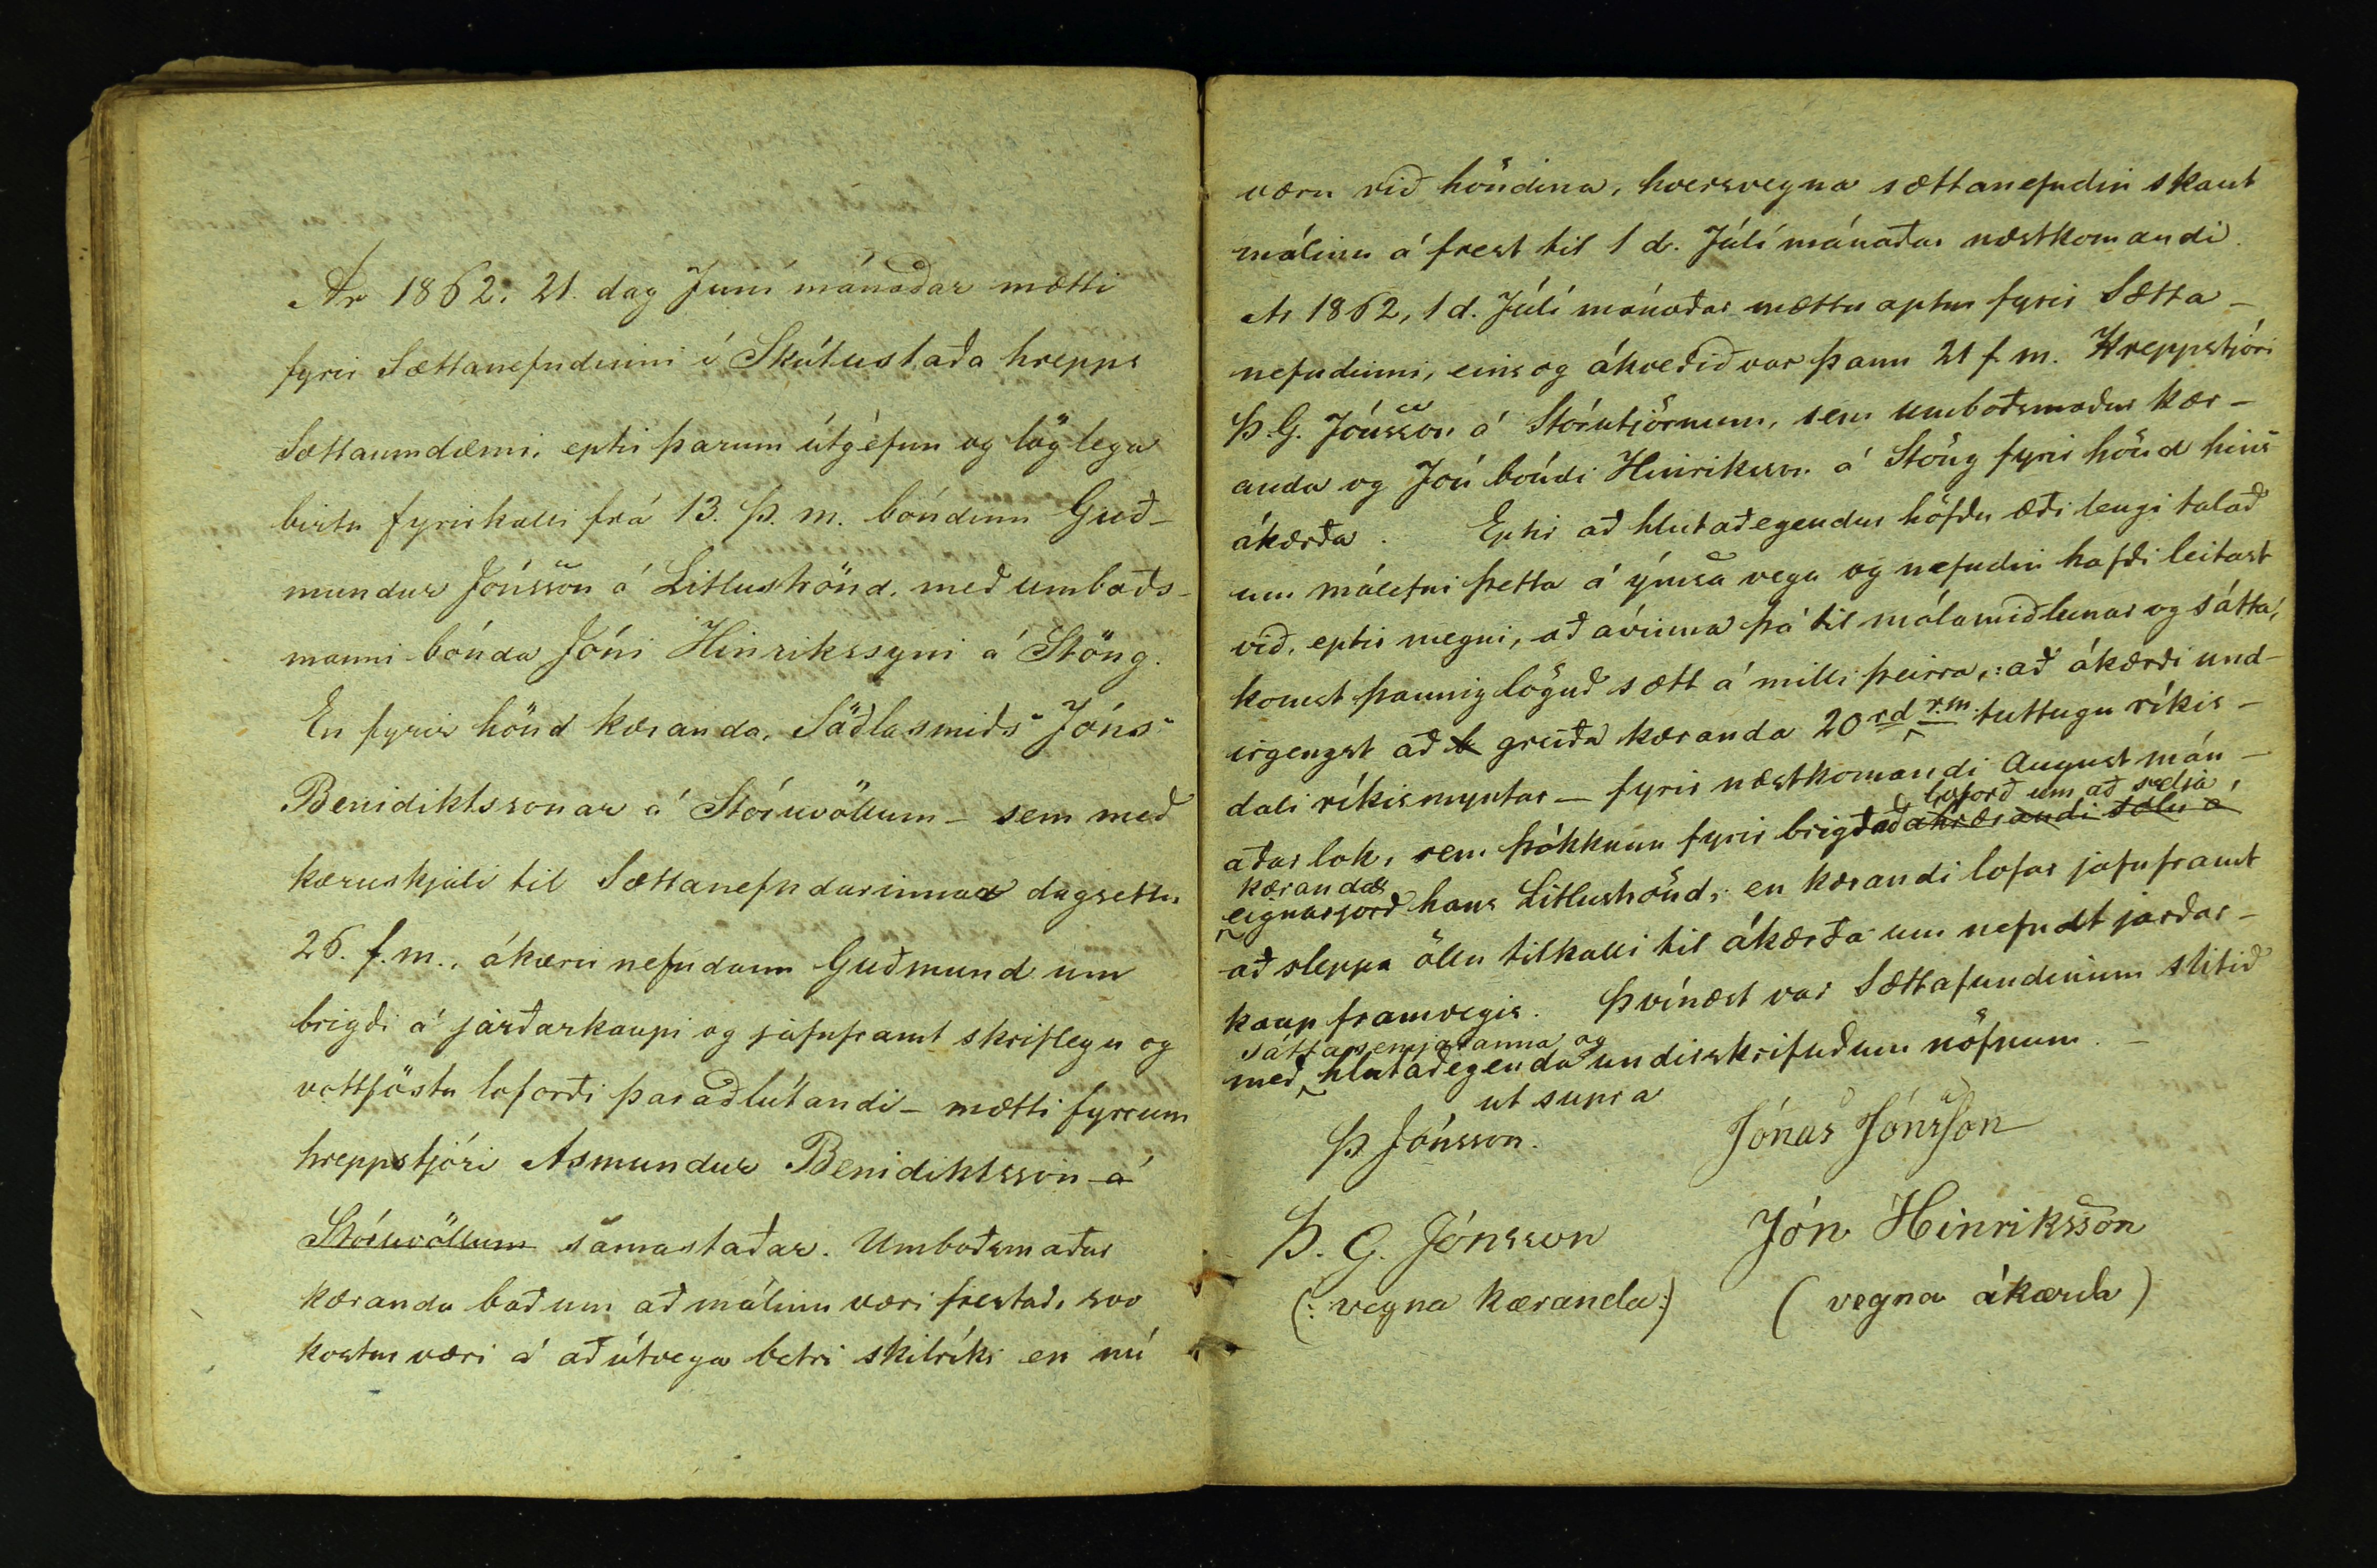 Ár 1862. 21. dag Júní mánaðar mætti
fyrir Sættanefndinni í Skútustaða hrepps
Sættaumdæmi, eptir þarum útgéfnu og löglega
birtu fyrirkalli frá 13. þ. m. bóndinn Guð-
mundur Jónsson á Litluströnd, með umboðs-
manni bónda Jóni Hinrikssyni á Stöng.
En fyrir hönd kæranda, Söðlasmiðs Jóns
Benidiktssonar á Stóruvöllum - sem með
kæruskjali til Sættanefndarinnar dagsettu
26. f. m., ákæru nefndann Guðmund um
brigði á jarðarkaupi og jafnframt skriflegu og
vottföstu loforði þaraðlútandi - mætti fyrrum
hreppstjóri Asmundur Benidiktsson á
Stóruvöllum samastaðar. Umboðsmaður
kæranda bað um að málinu væri frestað, svo
kostur væri á að útvega betri skilríki en nú
væru við höndina, hversvegna sættanefndin skaut
málinu á frest til 1 d. Júlí mánaðar næstkomandi.
Ár 1862, 1 d. Júlí mánaðar mættu aptur fyrir Sætta-
nefndinni, eins og ákveðið var þann 21 f. m. Hreppstjóri
Þ. G. Jónsson á Stórutjörnum, sem umboðsmaður kær-
anda og Jón bóndi Hinriksson á Stöng fyrir hönd hins
ákærða. Eptir að hlutaðegendur höfðu æði lengi talað
um málefni þetta á ýmsa vega og nefndin hafði leitast
við, eptir megni, að ávinna þá til málamiðlunar og sátta,
komst þannig löguð sætt á milli þeirra,: að ákærði und-
irgengst að greiða kæranda 20 rd r.m. tuttugu ríkis-
dali ríkismyntar - fyrir næstkomandi August mán-
loforð um að selja
aðar lok, sem þókknun fyrir brigðað kærandi sölu á
kæranda
eignarjorð hans Litluströnd; en kærandi lofar jafnframt
að sleppa öllu tilkalli til ákærða um nefndt jarðar-
kaup framvegis. Þvínæst var Sættafundinum slitið
sáttasemjaranna og
með hlutaðegenda undirskrifuðum nöfnum. -
ut supra
Þ Jónsson. Jónas Jónsson
Þ. G. Jónsson Jón Hinriksson
(: vegna kæranda:) ( vegna ákærda )